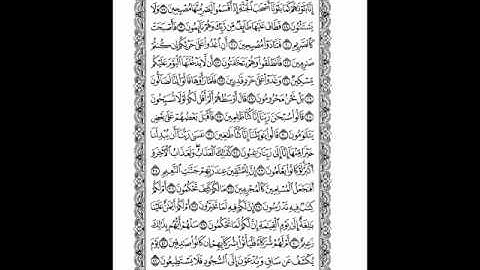 إِنَّا بَلَوْنَٰهُمْ كَمَا بَلَوْنَآ أَصْحَٰبَ ٱلْجَنَّةِ إِذْ أَقْسَمُوا۟ لَيَصْرِمُنَّهَا مُصْبِحِينَ ١٧ وَلَا
يَسْتَثْنُونَ ١٨ فَطَافَ عَلَيْهَا طَآئِفٌ مِّن رَّبِّكَ وَهُمْ نَآئِمُونَ ١٩ فَأَصْبَحَتْ
كَٱلصَّرِيمِ ٢٠ فَتَنَادَوْا۟ مُصْبِحِينَ ٢١ أَنِ ٱغْدُوا۟ عَلَىٰ حَرْثِكُمْ إِن كُنتُمْ
صَٰرِمِينَ ٢٢ فَٱنطَلَقُوا۟ وَهُمْ يَتَخَٰفَتُونَ ٢٣ أَن لَّا يَدْخُلَنَّهَا ٱلْيَوْمَ عَلَيْكُم
مِّسْكِينٌ ٢٤ وَغَدَوْا۟ عَلَىٰ حَرْدٍ قَٰدِرِينَ ٢٥ فَلَمَّا رَأَوْهَا قَالُوٓا۟ إِنَّا لَضَآلُّونَ
٢٦ بَلْ نَحْنُ مَحْرُومُونَ ٢٧ قَالَ أَوْسَطُهُمْ أَلَمْ أَقُل لَّكُمْ لَوْلَا تُسَبِّحُونَ
٢٨ قَالُوا۟ سُبْحَٰنَ رَبِّنَآ إِنَّا كُنَّا ظَٰلِمِينَ ٢٩ فَأَقْبَلَ بَعْضُهُمْ عَلَىٰ بَعْضٍ
يَتَلَٰوَمُونَ ٣٠ قَالُوا۟ يَٰوَيْلَنَآ إِنَّا كُنَّا طَٰغِينَ ٣١ عَسَىٰ رَبُّنَآ أَن يُبْدِلَنَا
خَيْرًا مِّنْهَآ إِنَّآ إِلَىٰ رَبِّنَا رَٰغِبُونَ ٣٢ كَذَٰلِكَ ٱلْعَذَابُ وَلَعَذَابُ ٱلْءَاخِرَةِ
أَكْبَرُ لَوْ كَانُوا۟ يَعْلَمُونَ ٣٣ إِنَّ لِلْمُتَّقِينَ عِندَ رَبِّهِمْ جَنَّٰتِ ٱلنَّعِيمِ ٣٤
أَفَنَجْعَلُ ٱلْمُسْلِمِينَ كَٱلْمُجْرِمِينَ ٣٥ مَا لَكُمْ كَيْفَ تَحْكُمُونَ ٣٦ أَمْ لَكُمْ
كِتَٰبٌ فِيهِ تَدْرُسُونَ ٣٧ إِنَّ لَكُمْ فِيهِ لَمَا تَخَيَّرُونَ ٣٨ أَمْ لَكُمْ أَيْمَٰنٌ عَلَيْنَا
بَٰلِغَةٌ إِلَىٰ يَوْمِ ٱلْقِيَٰمَةِ إِنَّ لَكُمْ لَمَا تَحْكُمُونَ ٣٩ سَلْهُمْ أَيُّهُم بِذَٰلِكَ
زَعِيمٌ ٤٠ أَمْ لَهُمْ شُرَكَآءُ فَلْيَأْتُوا۟ بِشُرَكَآئِهِمْ إِن كَانُوا۟ صَٰدِقِينَ ٤١ يَوْمَ
يُكْشَفُ عَن سَاقٍ وَيُدْعَوْنَ إِلَى ٱلسُّجُودِ فَلَا يَسْتَطِيعُونَ ٤٢